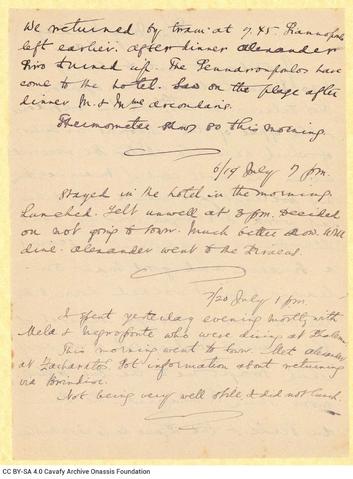 We returned by tram at 7.45.
left earlier. After dinner Alexander
turned up. The have
come to the hotel. Saw on the plage after
dinner M. & Mme
Thermometer show 80 this morning.
6/19 July 7 p.m.
Stayed in the hotel in the morning.
Lunched. Felt unwell at 3 p.m. Decided
on not going to town. Much better now. Will
dine. Alexander went to the Piraeus.
7/20 July 1 p.m.
I spent yesterday evening mostly with
Mela & Negroponte who were dining at
This morning went to town. Met Alexander
at Zacharatos. Got information about returning
via Brindisi.
Not being very well still, I did not lunch.
CC BY-SA 4.0 Cavafy Archive Onassis Foundation